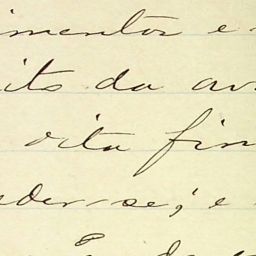 imentos e
its da av
dita fin
der-se; e